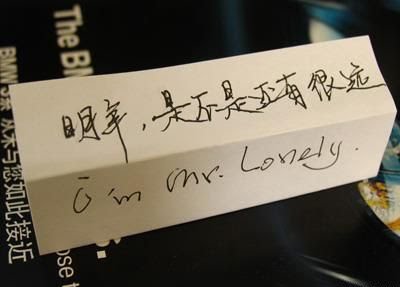 明年，是不是还有很远
i'm Mr. Lonely.
The BM
BMW
次技术与您如此接近
s.
ose to